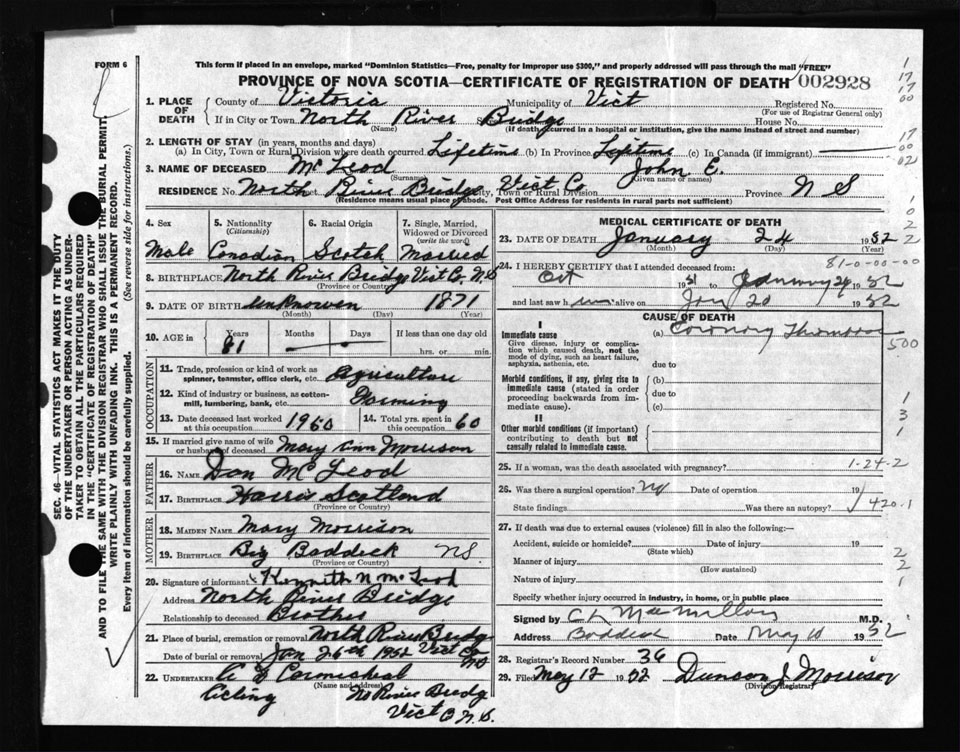 FORM 6
This form if placed in an envelope, marked "Dominion Statistics—Free, penalty for improper use $300," and properly addressed will pass through the mail "FREE"
PROVINCE OF NOVA SCOTIA—CERTIFICATE OF REGISTRATION OF DEATH 002928
1. PLACE OF DEATH County of Victoria Municipality of Vict Registered No.
(For use of Registrar General only)
If in City or Town North River Bridge House No.
(Name) (If death occurred in a hospital or institution, give the name instead of street and number)
2. LENGTH OF STAY (in years, months and days)
(a) In City, Town or Rural Division where death occurred Lifetime (b) In Province Lifetime (c) In Canada (if immigrant)
3. NAME OF DECEASED McLeod John E.
(Surname) (Given name or names)
RESIDENCE No. North River Bridge City, Town or Rural Division Vict Co Province N S
(Residence means usual place of abode. Post Office Address for residents in rural parts not sufficient)
4. Sex
Male
5. Nationality
(Citizenship)
Canadian
6. Racial Origin
Scotch
7. Single, Married, Widowed or Divorced
(write the word)
Married
8. BIRTHPLACE North River Bridge Vict Co. N.S
(Province or Country)
9. DATE OF BIRTH unknowen 1871
(Month) (Day) (Year)
10. AGE in Years Months Days If less than one day old
81 hrs. or min.
OCCUPATION
11. Trade, profession or kind of work as spinner, teamster, office clerk, etc. Agriculture
12. Kind of industry or business, as cotton-mill, lumbering, bank, etc. Farming
13. Date deceased last worked at this occupation 1950
14. Total yrs. spent in this occupation 60
15. If married give name of wife or husband of deceased Mary Ann Morrison
FATHER
16. NAME Dan McLeod
17. BIRTHPLACE Harris Scotland
(Province or Country)
MOTHER
18. MAIDEN NAME Mary Morrison
19. BIRTHPLACE Big Baddeck NS
(Province or Country)
20. Signature of informant Kenneth N. McLeod
Address North River Bridge
Relationship to deceased Brother
21. Place of burial, cremation or removal North River Bridge
Vict Co NS
Date of burial or removal Jan 26th 1952
22. UNDERTAKER A Carmichael
(Name and address)
Acting No River Bridge
Vict C N.S.
MEDICAL CERTIFICATE OF DEATH
23. DATE OF DEATH January 24 1952
(Month) (Day) (Year)
81-0-00-00
24. I HEREBY CERTIFY that I attended deceased from:
Oct 1951 to January 24 1952
and last saw him alive on Jan 20 1952
CAUSE OF DEATH
I
Immediate cause (a) Coronary Thrombosis
Give disease, injury or complication which caused death, not the mode of dying, such as heart failure, asphyxia, asthenia, etc.
due to
Morbid conditions, if any, giving rise to immediate cause (stated in order proceeding backwards from immediate cause).
(b)
due to
(c)
II
Other morbid conditions (if important) contributing to death but not causally related to immediate cause.
25. If a woman, was the death associated with pregnancy?
1-24-2
26. Was there a surgical operation? No Date of operation 19
State findings Was there an autopsy?
420.1
27. If death was due to external causes (violence) fill in also the following:—
Accident, suicide or homicide? Date of injury 19
(State which)
Manner of injury
(How sustained)
Nature of injury
Specify whether injury occurred in industry, in home, or in public place
Signed by C L MacMillan M.D.
Address Baddeck Date May 10 1952
28. Registrar's Record Number 36
29. Filed May 12 1952 Duncan J Morrison
(Division Registrar)
SEC. 46—VITAL STATISTICS ACT MAKES IT THE DUTY
OF THE UNDERTAKER OR PERSON ACTING AS UNDERTAKER TO OBTAIN ALL THE PARTICULARS REQUIRED
IN THE "CERTIFICATE OF REGISTRATION OF DEATH"
AND TO FILE THE SAME WITH THE DIVISION REGISTRAR WHO SHALL ISSUE THE BURIAL PERMIT.
WRITE PLAINLY WITH UNFADING INK. THIS IS A PERMANENT RECORD.
Every item of information should be carefully supplied. (See reverse side for instructions.)
1
17
17
00
17
00
02
1
0
2
2
500
1
3
1
2
2
1